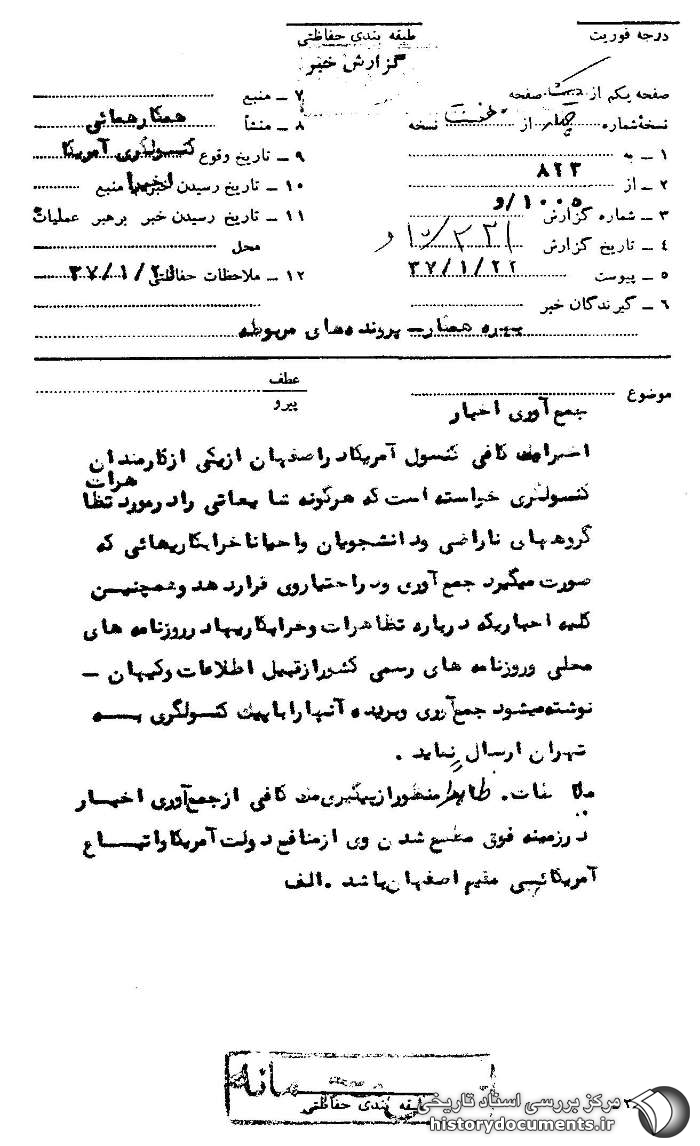 درجه فوریت
طبقه بندی حفاظتی
گزارش خبر
صفحه یکم از یک صفحه
نسخه شماره چهار از هفت نسخه
۱ ــ به
۲ ــ از ۸۲۳
۳ ــ شماره گزارش ۱۰۰۵/و
۴ ــ تاریخ گزارش
۵ ــ پیوست ۳۷/۱/۲۲
۶ ــ گیرندگان خبر
۷ ــ منبع
۸ ــ منشأ همکار همائی
۹ ــ تاریخ وقوع کنسولگری آمریکا
۱۰ ــ تاریخ رسیدن خبر به منبع اخیرا
۱۱ ــ تاریخ رسیدن خبر برهبر عملیات
محل
۱۲ ــ ملاحظات حفاظتی ۳۷/۱/۲۱
بهره همکار ــ پرونده‌های مربوطه
موضوع
عطف
پیرو
جمع آوری اخبار
کافی کنسول آمریکا در اصفهان از یکی از کارمندان
کنسولگری خواسته است که هرگونه شایعاتی را در مورد تظاهرات
گروههای ناراضی و دانشجویان و احیانا خرابکاریهائی که
صورت میگیرد جمع آوری و در اختیار وی قرار دهد و همچنین
کلیه اخباریکه درباره تظاهرات و خرابکاریها در روزنامه های
محلی و روزنامه های رسمی کشور از قبیل اطلاعات و کیهان ــ
نوشته میشود جمع آوری و بریده آنها را با پیک کنسولگری بــه
تهران ارسال نماید .
ملاحظات . ظاهرا منظور از پیگیری مک کافی از جمع آوری اخبـار
در زمینه فوق مطلع شدن وی از منافع دولت آمریکا و اتبـــاع
آمریکائــی مقیم اصفهان باشد . الف
طبقه بندی حفاظتی
مرکز بررسی اسناد تاریخی
historydocuments.ir